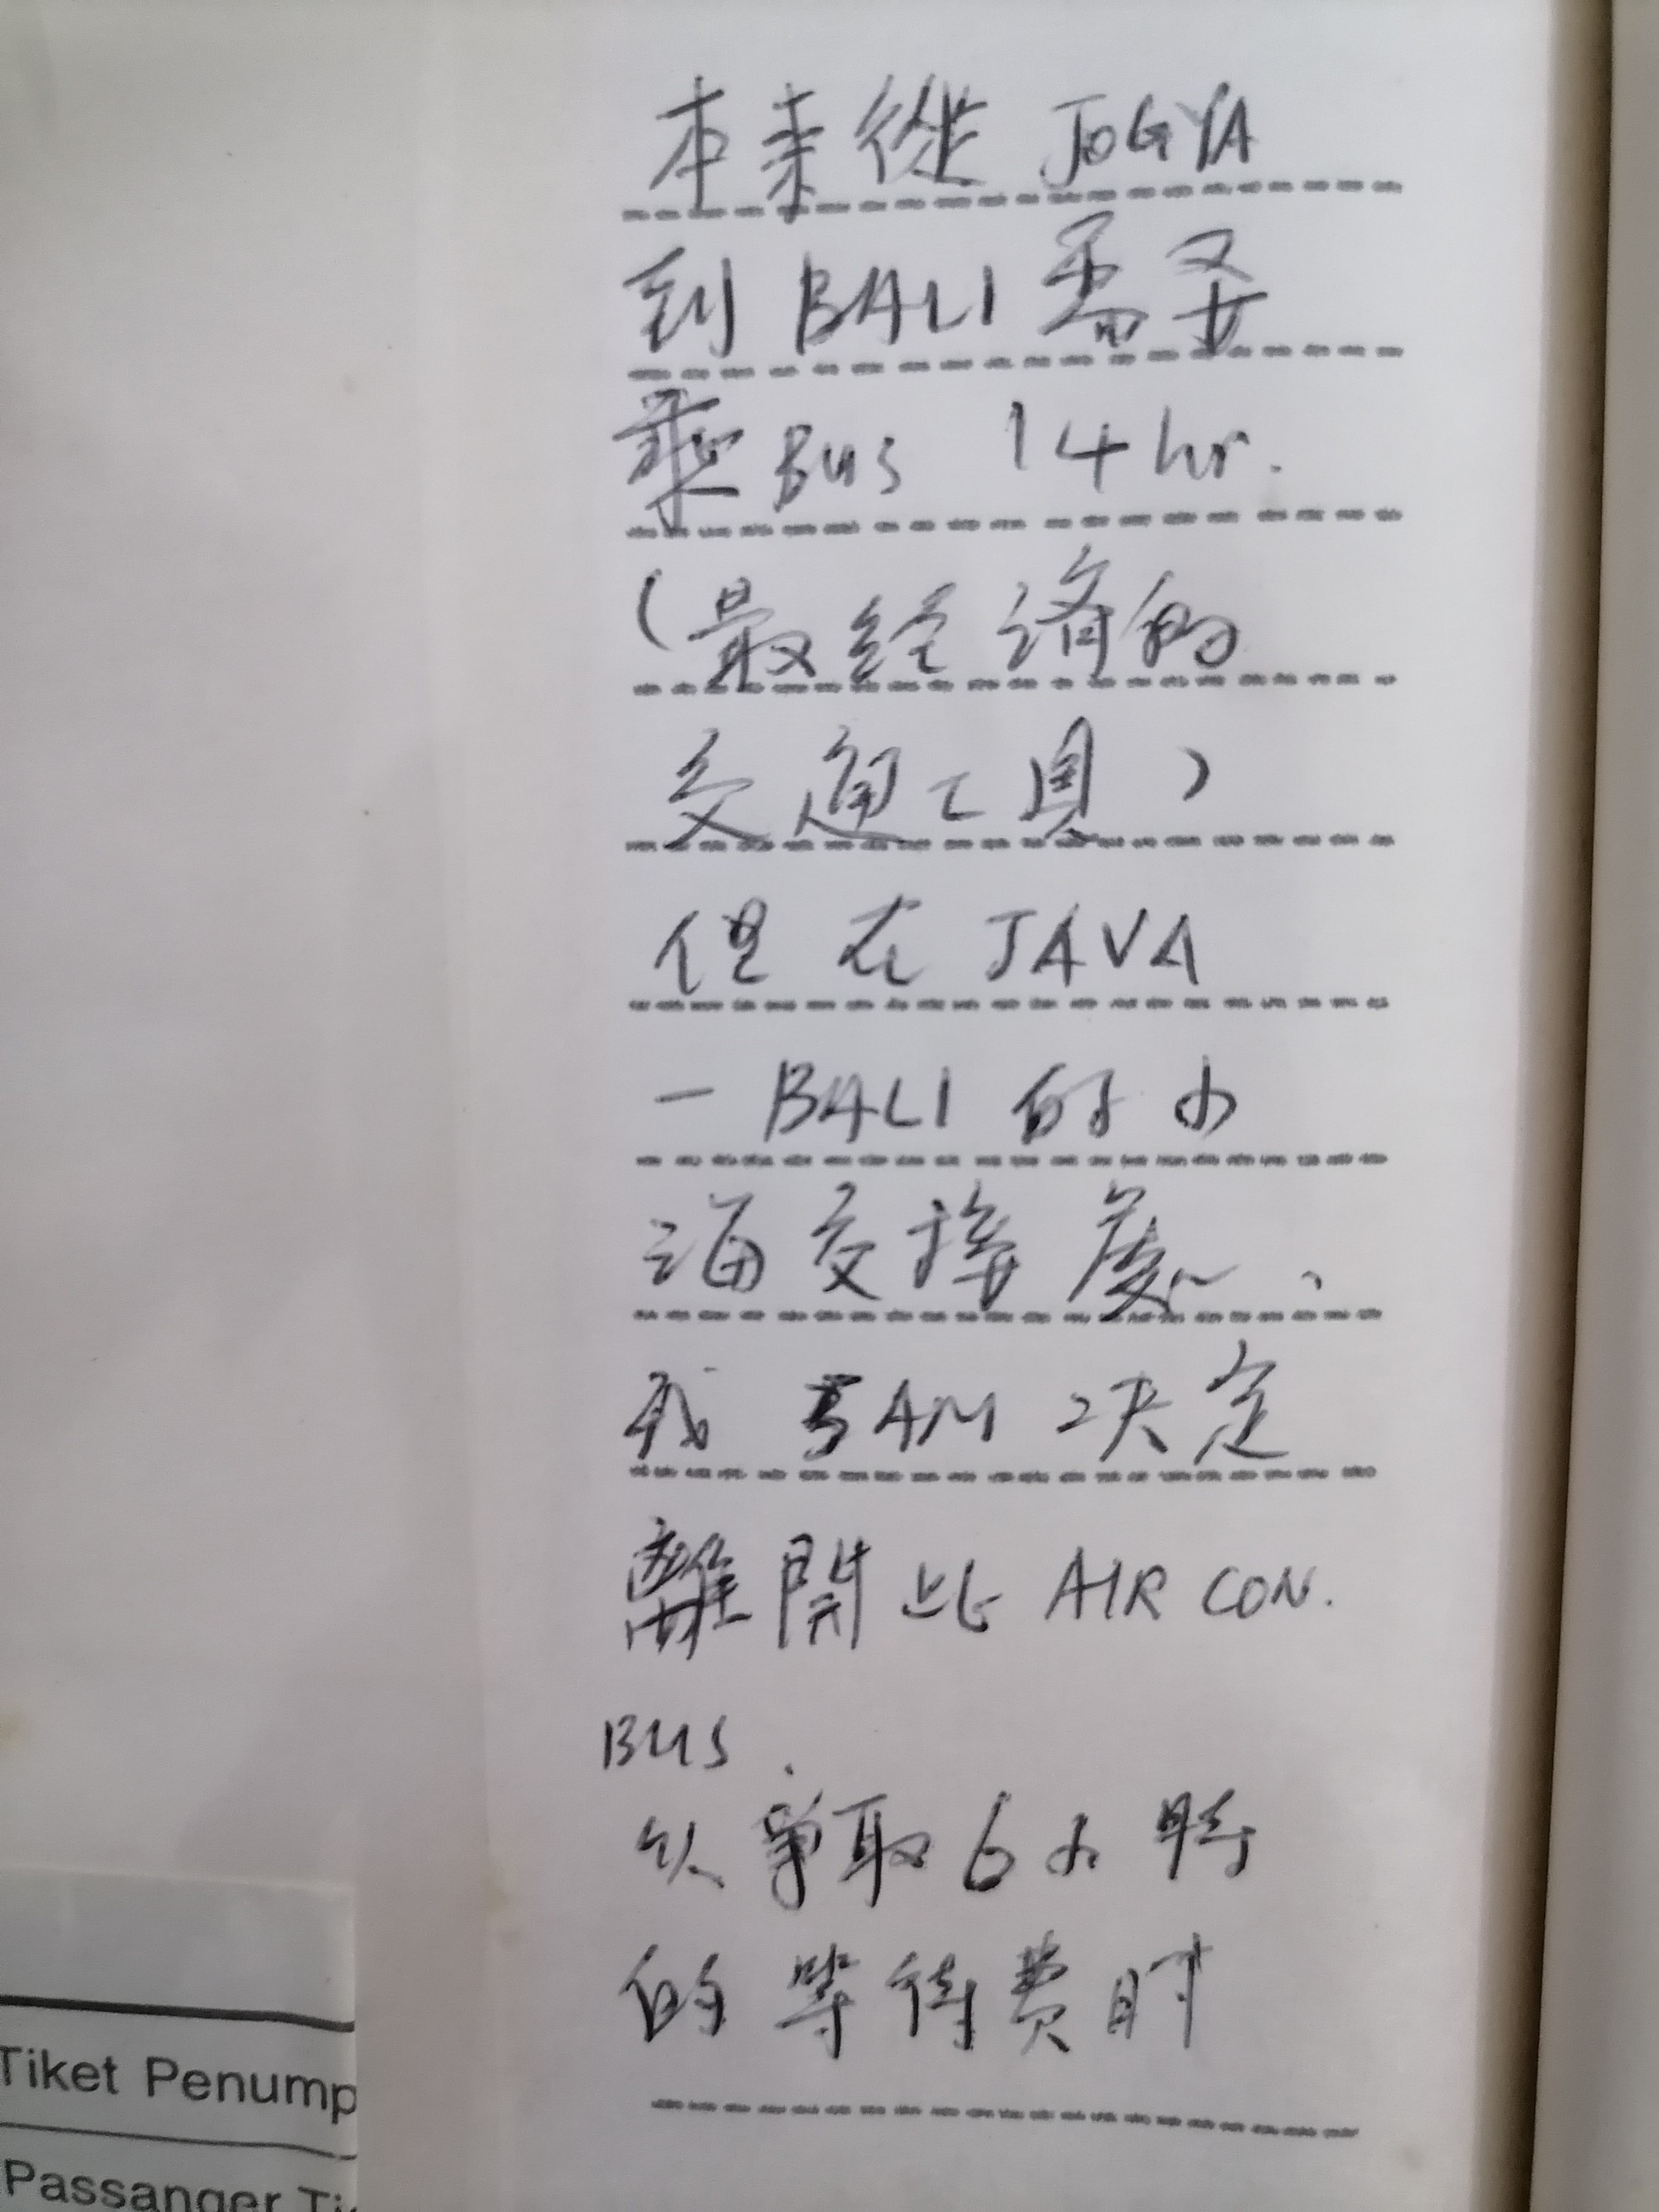 本來從 JOGYA
到 BALI 需要
乘 Bus 14 hr.
(最經濟的
交通工具)
但在 JAVA
一 BALI 的小
海交接處、
我 5AM 決定
離開此 AIR CON.
BUS.
以爭取 6 小時
的等待費時
Tiket Penump
Passanger Ti